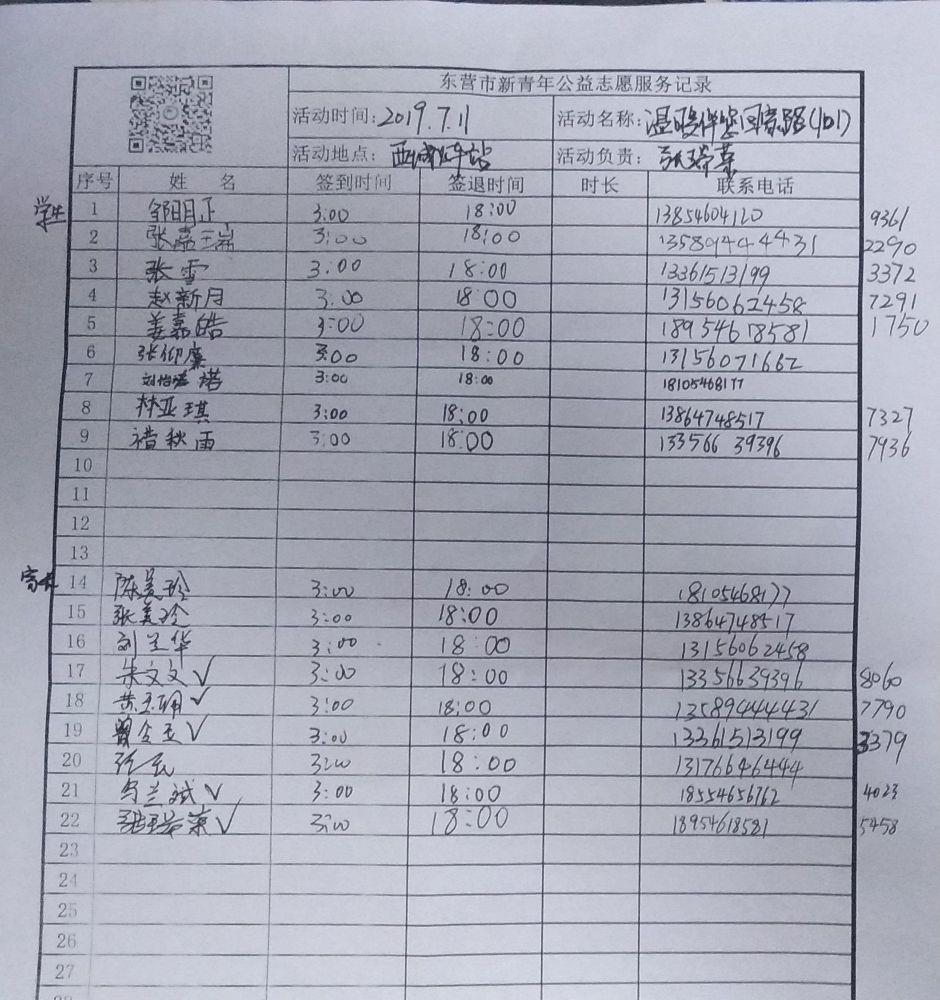 东营市新青年公益志愿服务记录
活动时间:2019.7.11 活动名称:温暖伴您回家路(101)
活动地点:西城汽车站 活动负责:张瑞荣
序号 姓 名 签到时间 签退时间 时长 联系电话
学生 1 邹明正 3:00 18:00 13854604120 9361
2 张嘉瑞 3:00 18:00 13589444431 2290
3 张雪 3:00 18:00 13361513199 3372
4 赵新月 3:00 18:00 13156062458 7291
5 姜嘉皓 3:00 18:00 18954618581 1750
6 张仰廉 3:00 18:00 13156071662
7 刘怡 3:00 18:00 18105468177
8 林亚琪 3:00 18:00 13864748517 7327
9 褚秋雨 3:00 18:00 13356639396 7936
10
11
12
13
家长 14 陈美玲 3:00 18:00 18105468177
15 张美玲 3:00 18:00 13864748517
16 刘兰华 3:00 18:00 13156062458
17 朱文文✓ 3:00 18:00 13356639396 8060
18 黄玉娟✓ 3:00 18:00 13589444431 7790
19 曾金玉✓ 3:00 18:00 13361513199 3379
20 3:00 18:00 13176646444
21 兰斌✓ 3:00 18:00 18554656762 4023
22 张瑞荣✓ 3:00 18:00 18954618581 5458
23
24
25
26
27